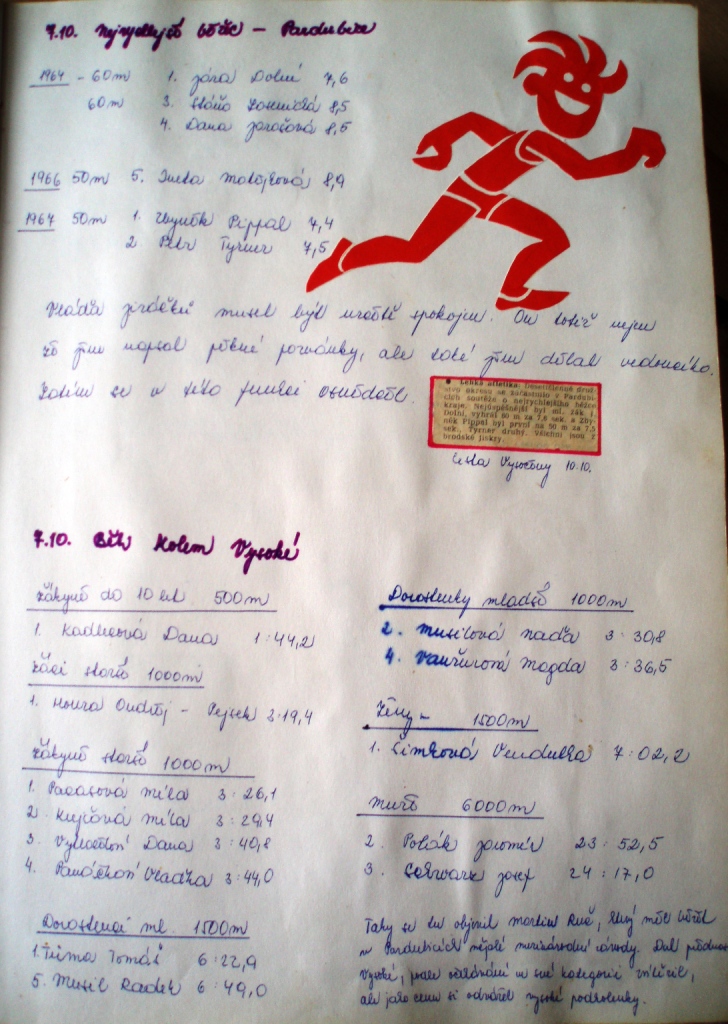 7.10. Nejrychlejší běžec - Pardubice
1964 - 60m 1. Jára Dolní 7,6
60m 3. 8,5
4. Dana Jarošová 8,5
1966 50m 5. Iveta Matějková 8,9
1967 50m 1. Zbyněk Pippal 7,4
2. Petr Tyrner 7,5
Vláďa musel být určitě spokojen. On totiž nejen
že jim napsal pěkné pozvánky, ale také jim dělal vedoucího.
Zatím se v této funkci osvědčil.
• Lehká atletika. Desetičlenné druž-
stvo okresu se zúčastnilo v Pardubi-
cích soutěže o nejrychlejšího běžce
kraje. Nejúspěšnější byl ml. žák J.
Dolní, vyhrál 60 m za 7,6 sek. a Zby-
něk Pippal byl první na 50 m za 7,5
sek., Tyrner druhý. Všichni jsou z
brodské Jiskry.
Cesta Vysočiny 10.10.
7.10. Běh Kolem Vysoké
Žákyně do 10 let 500m
1. Kadlecová Dana 1:44,2
Žáci starší 1000m
1. Houra Ondřej - Pejsek 3:19,4
Žákyně starší 1000m
1. Míla 3:26,1
2. Míla 3:29,4
3. Dana 3:40,8
4. Vlaďka 3:44,0
Dorostenci ml. 1500m
1. Tůma Tomáš 6:22,9
5. Musil Radek 6:49,0
Dorostenky mladší 1000m
2. Musilová Naďa 3:30,8
4. Vančurová Magda 3:36,5
Ženy - 1500m
1. Šimková Vendulka 7:02,2
Muži 6000m
2. Polák Jaromír 23:52,5
3. Josef 24:17,0
Taky se tu objevil Martin, který měl běžet
v Pardubicích nějaké mezinárodní závody. Dal přednost
Vysoké, podle očekávání ve své kategorii zvítězil,
ale jako cenu si odvážel vysoké podkolenky.